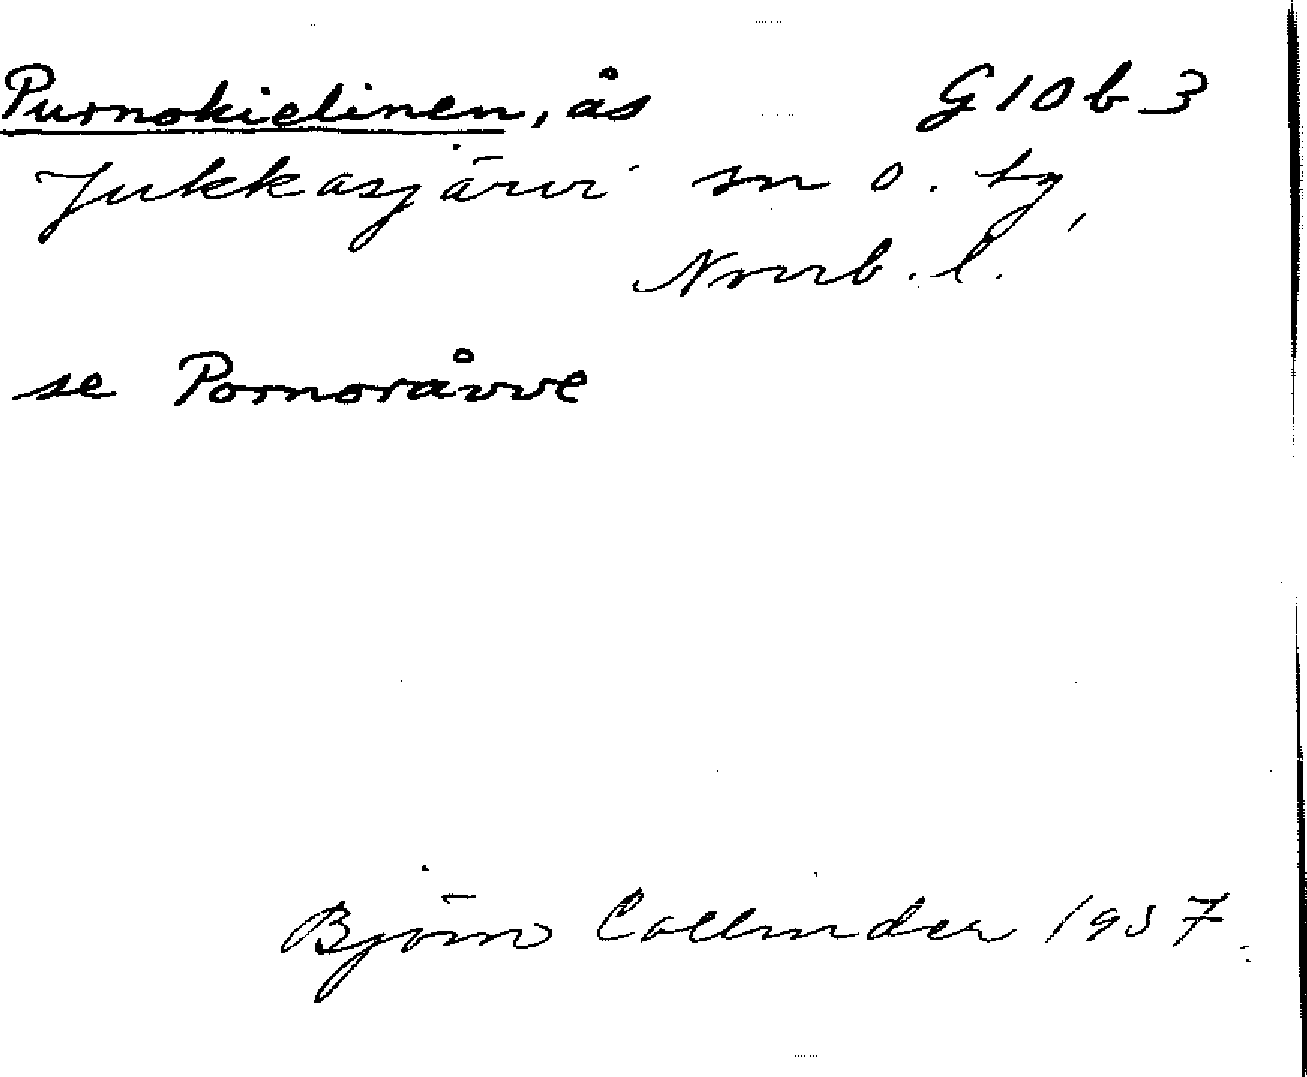 Purnokielinen, ås G10b3
Jukkasjärvi sn o. tg,
Norrb. l.
se Pornoråvve
Björn Collinder 1957